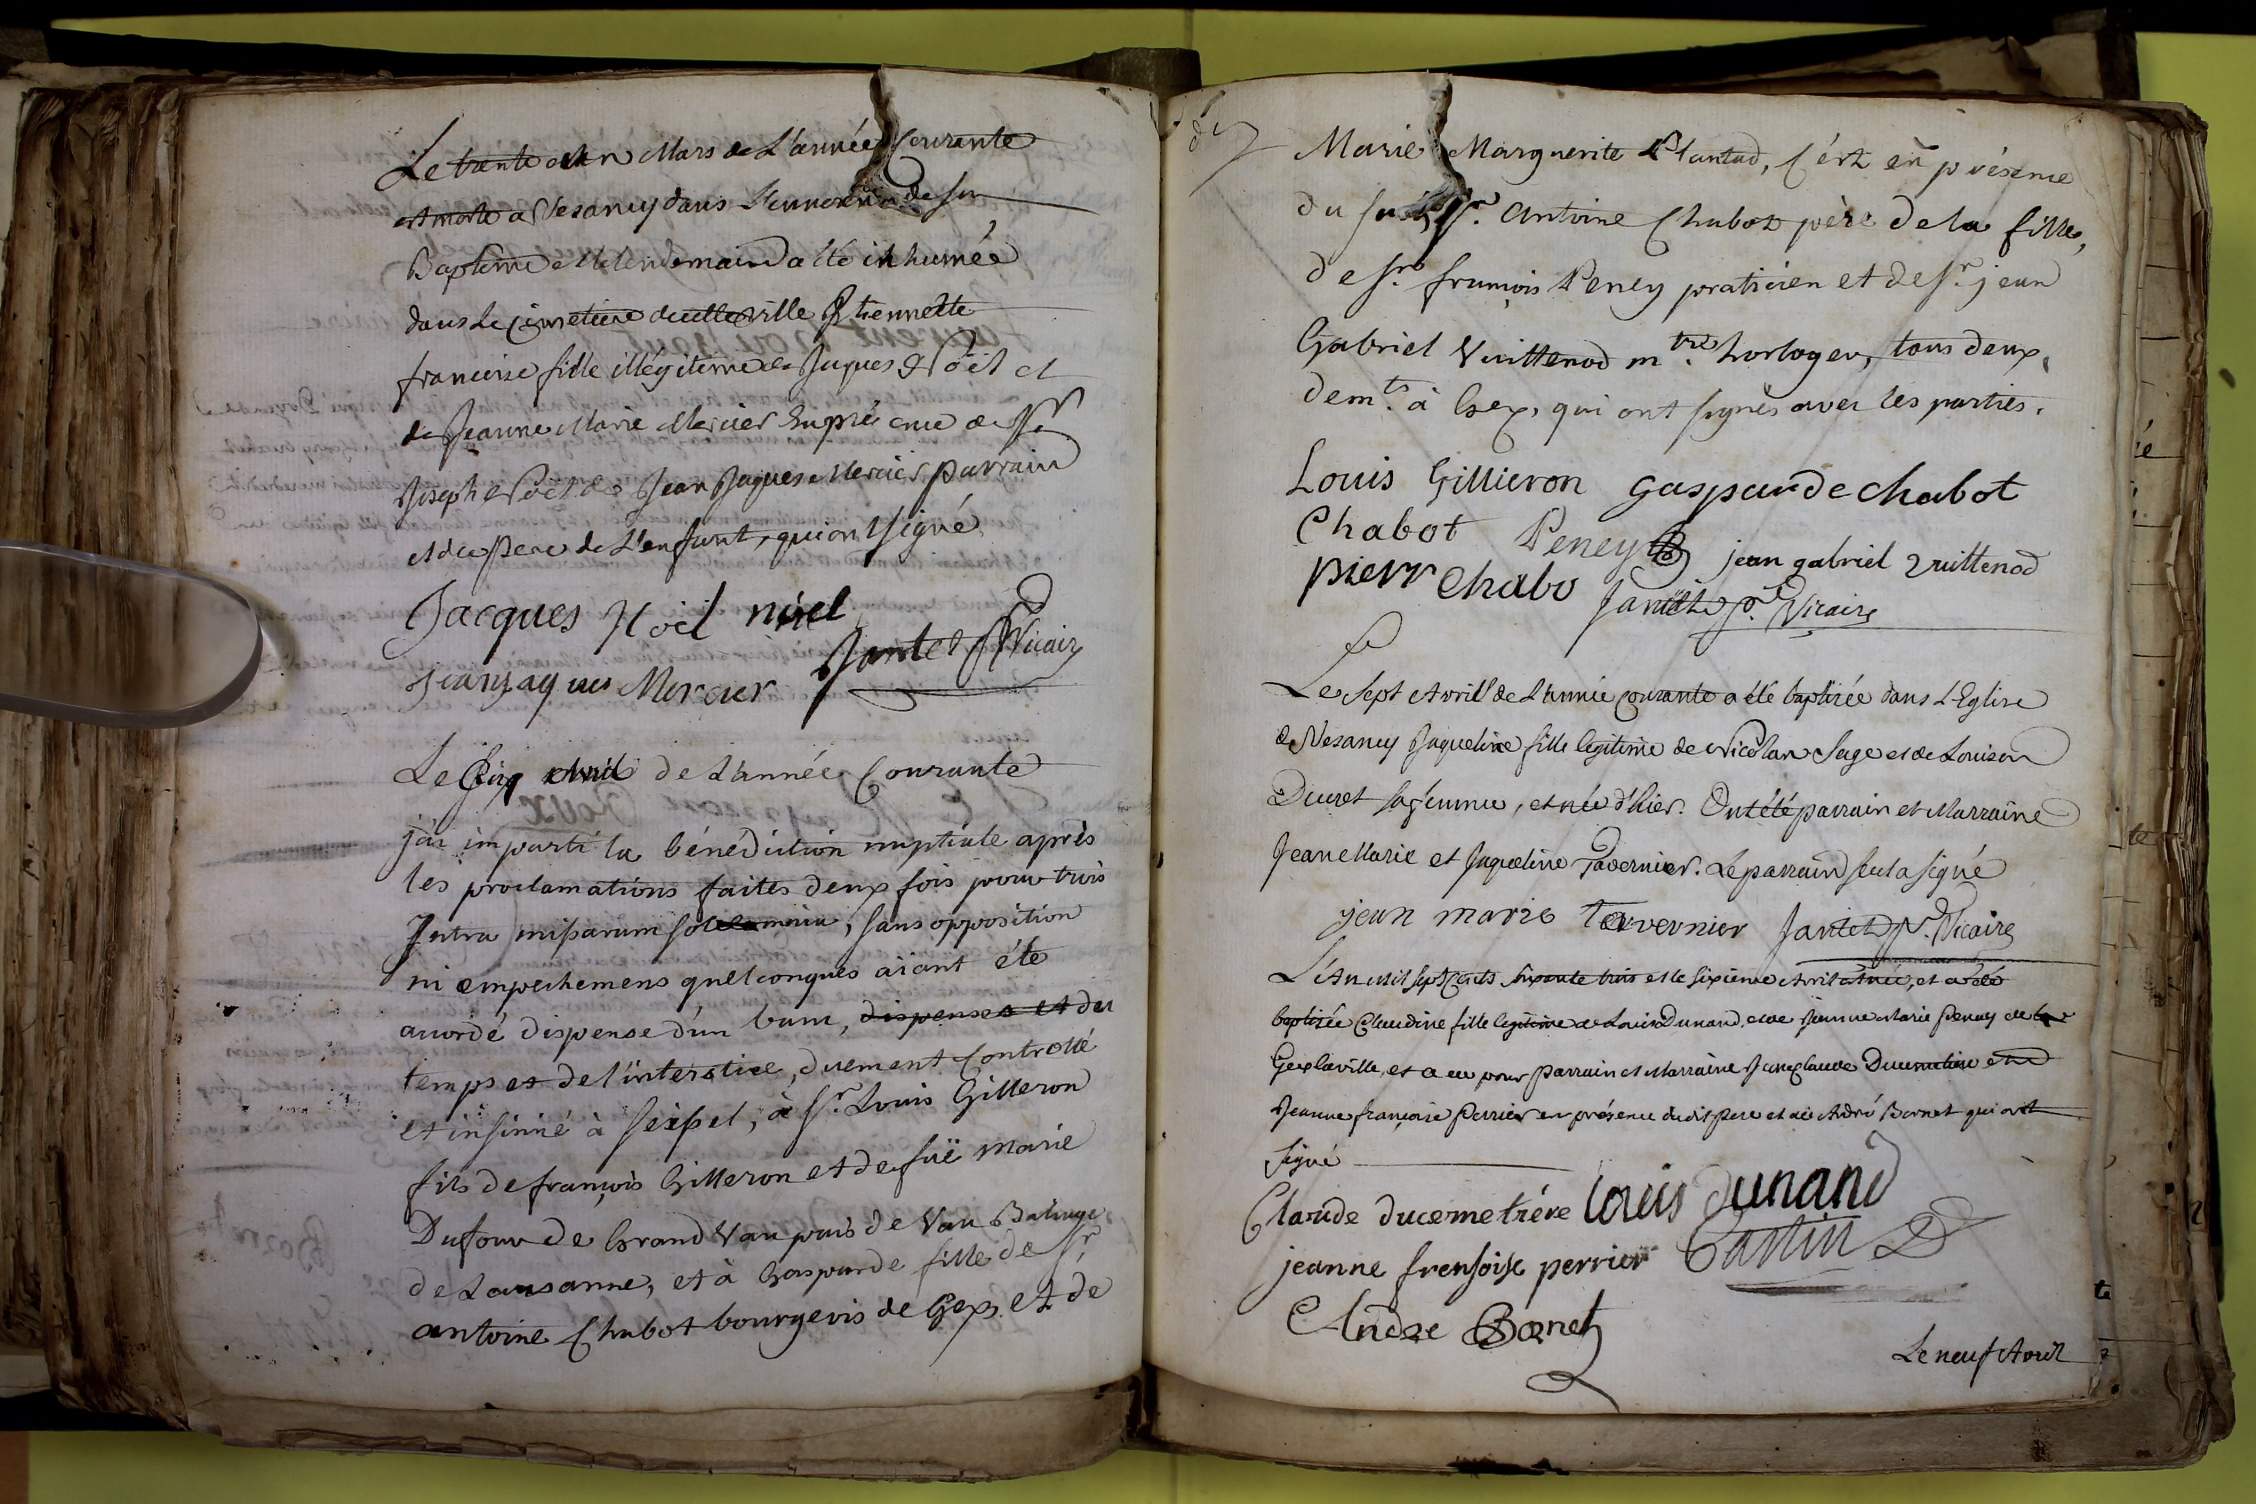 Le trente et un Mars de L'année Courante
est morte a Vesancy dans L'innocence de son
Baptême et Le lendemain a été inhumée
dans Le Cimetiere de cette ville Etiennette
francoise fille illégitime de Jaques Noël et
de Jeanne Marie Mercier En présence de Sr
Joseph Noël de Jean Jaques Mercier parrain
et du pere de L'enfant, qui ont signé
Jacques Noël noel
Jean jaques Mercier Jantet pr Vicair
Le Cinq Avril de L'année Courante
j'ai imparti la bénédiction nuptiale après
les proclamations faites deux fois pour trois
Intra missarum solemnia, sans opposition
ni empechemens quelconques aiant été
accordé dispense d'un banc, dispenses et du
temps et de l'interstice, duement Controllé
et insinué à Seissel, à Sr. Louis Gilleron
fils de françois Gilleron et de fuë Marie
Dufour de Grand Vau
de Lausanne, et à Gasparde fille de Sr
antoine Chabot bourgeois de Gex, et de
Marie Marguerite Plantad, C'ért en présence
du susd. Sr. Antoine Chabot père de la fille,
de Sr. françois Peney praticien et de Sr. jean
Gabriel Vuittenod mtre. horloger, tous deux
demts. à Gex, qui ont signés avec les parties.
Louis Gillieron gasparde chabot
Chabot Peney jean gabriel Vuittenod
pierr Chabo Jantet pr. Vicaire
Le Sept Avril de L'année Courante a été baptisée dans L'Eglise
de Vesancy Jaqueline fille legitime de Nicolas Sage et de Louison
Ducret sa femme, et née d'hier. Ont été parrain et Marraine
Jean Marie et Jaqueline Tavernier. Le parrain seul a signé
jean marie tavernier Jantet pr. Vicaire
L'An mil Sept Cents Soixante trois et le Sixieme Avril est née, et a été
baptisée Claudine fille legitime de Louis Dunand, et de Jeanne Marie Peney de
Gex la ville, et a eu pour Parrain et Marraine Jean Claude Ducimetiere et
Jeanne françoise Perrier en présence du dit pere et de André Bornet qui ont
signé
Claude ducemetiére louis dunand
jeanne frensoise perrier Castin
Andre Bornet
Le neuf Avril